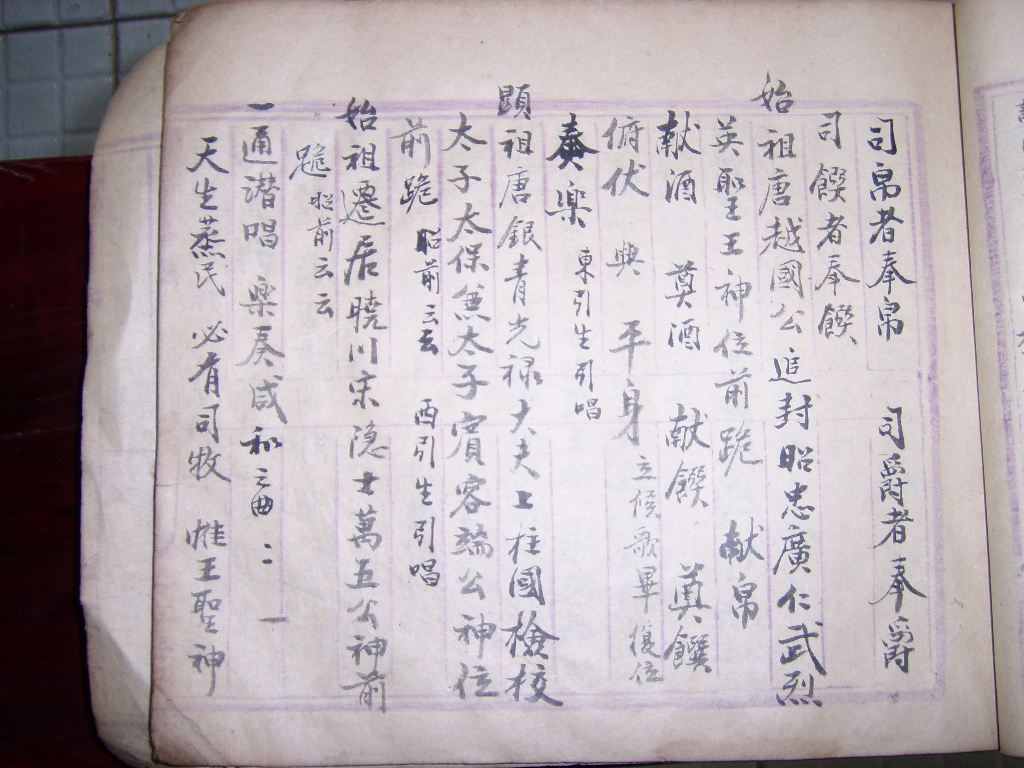 司帛者奉帛 司爵者奉爵
司饌者奉饌
始祖唐越國公追封昭忠廣仁武烈
英聖王神位前跪 献帛
献酒 奠酒 献饌 奠饌
俯伏 興 平身 立候歌畢復位
奏楽 東引生引唱
顕祖唐銀青光禄大夫上柱國檢校
太子太保兼太子賓客端公神位
前跪 昭前云云 西引生引唱
始祖遷居曉川宋隐士萬五公神前
跪 昭前云云
一通讃唱 楽奏咸和之曲
天生蒸民 必有司牧 惟王聖神